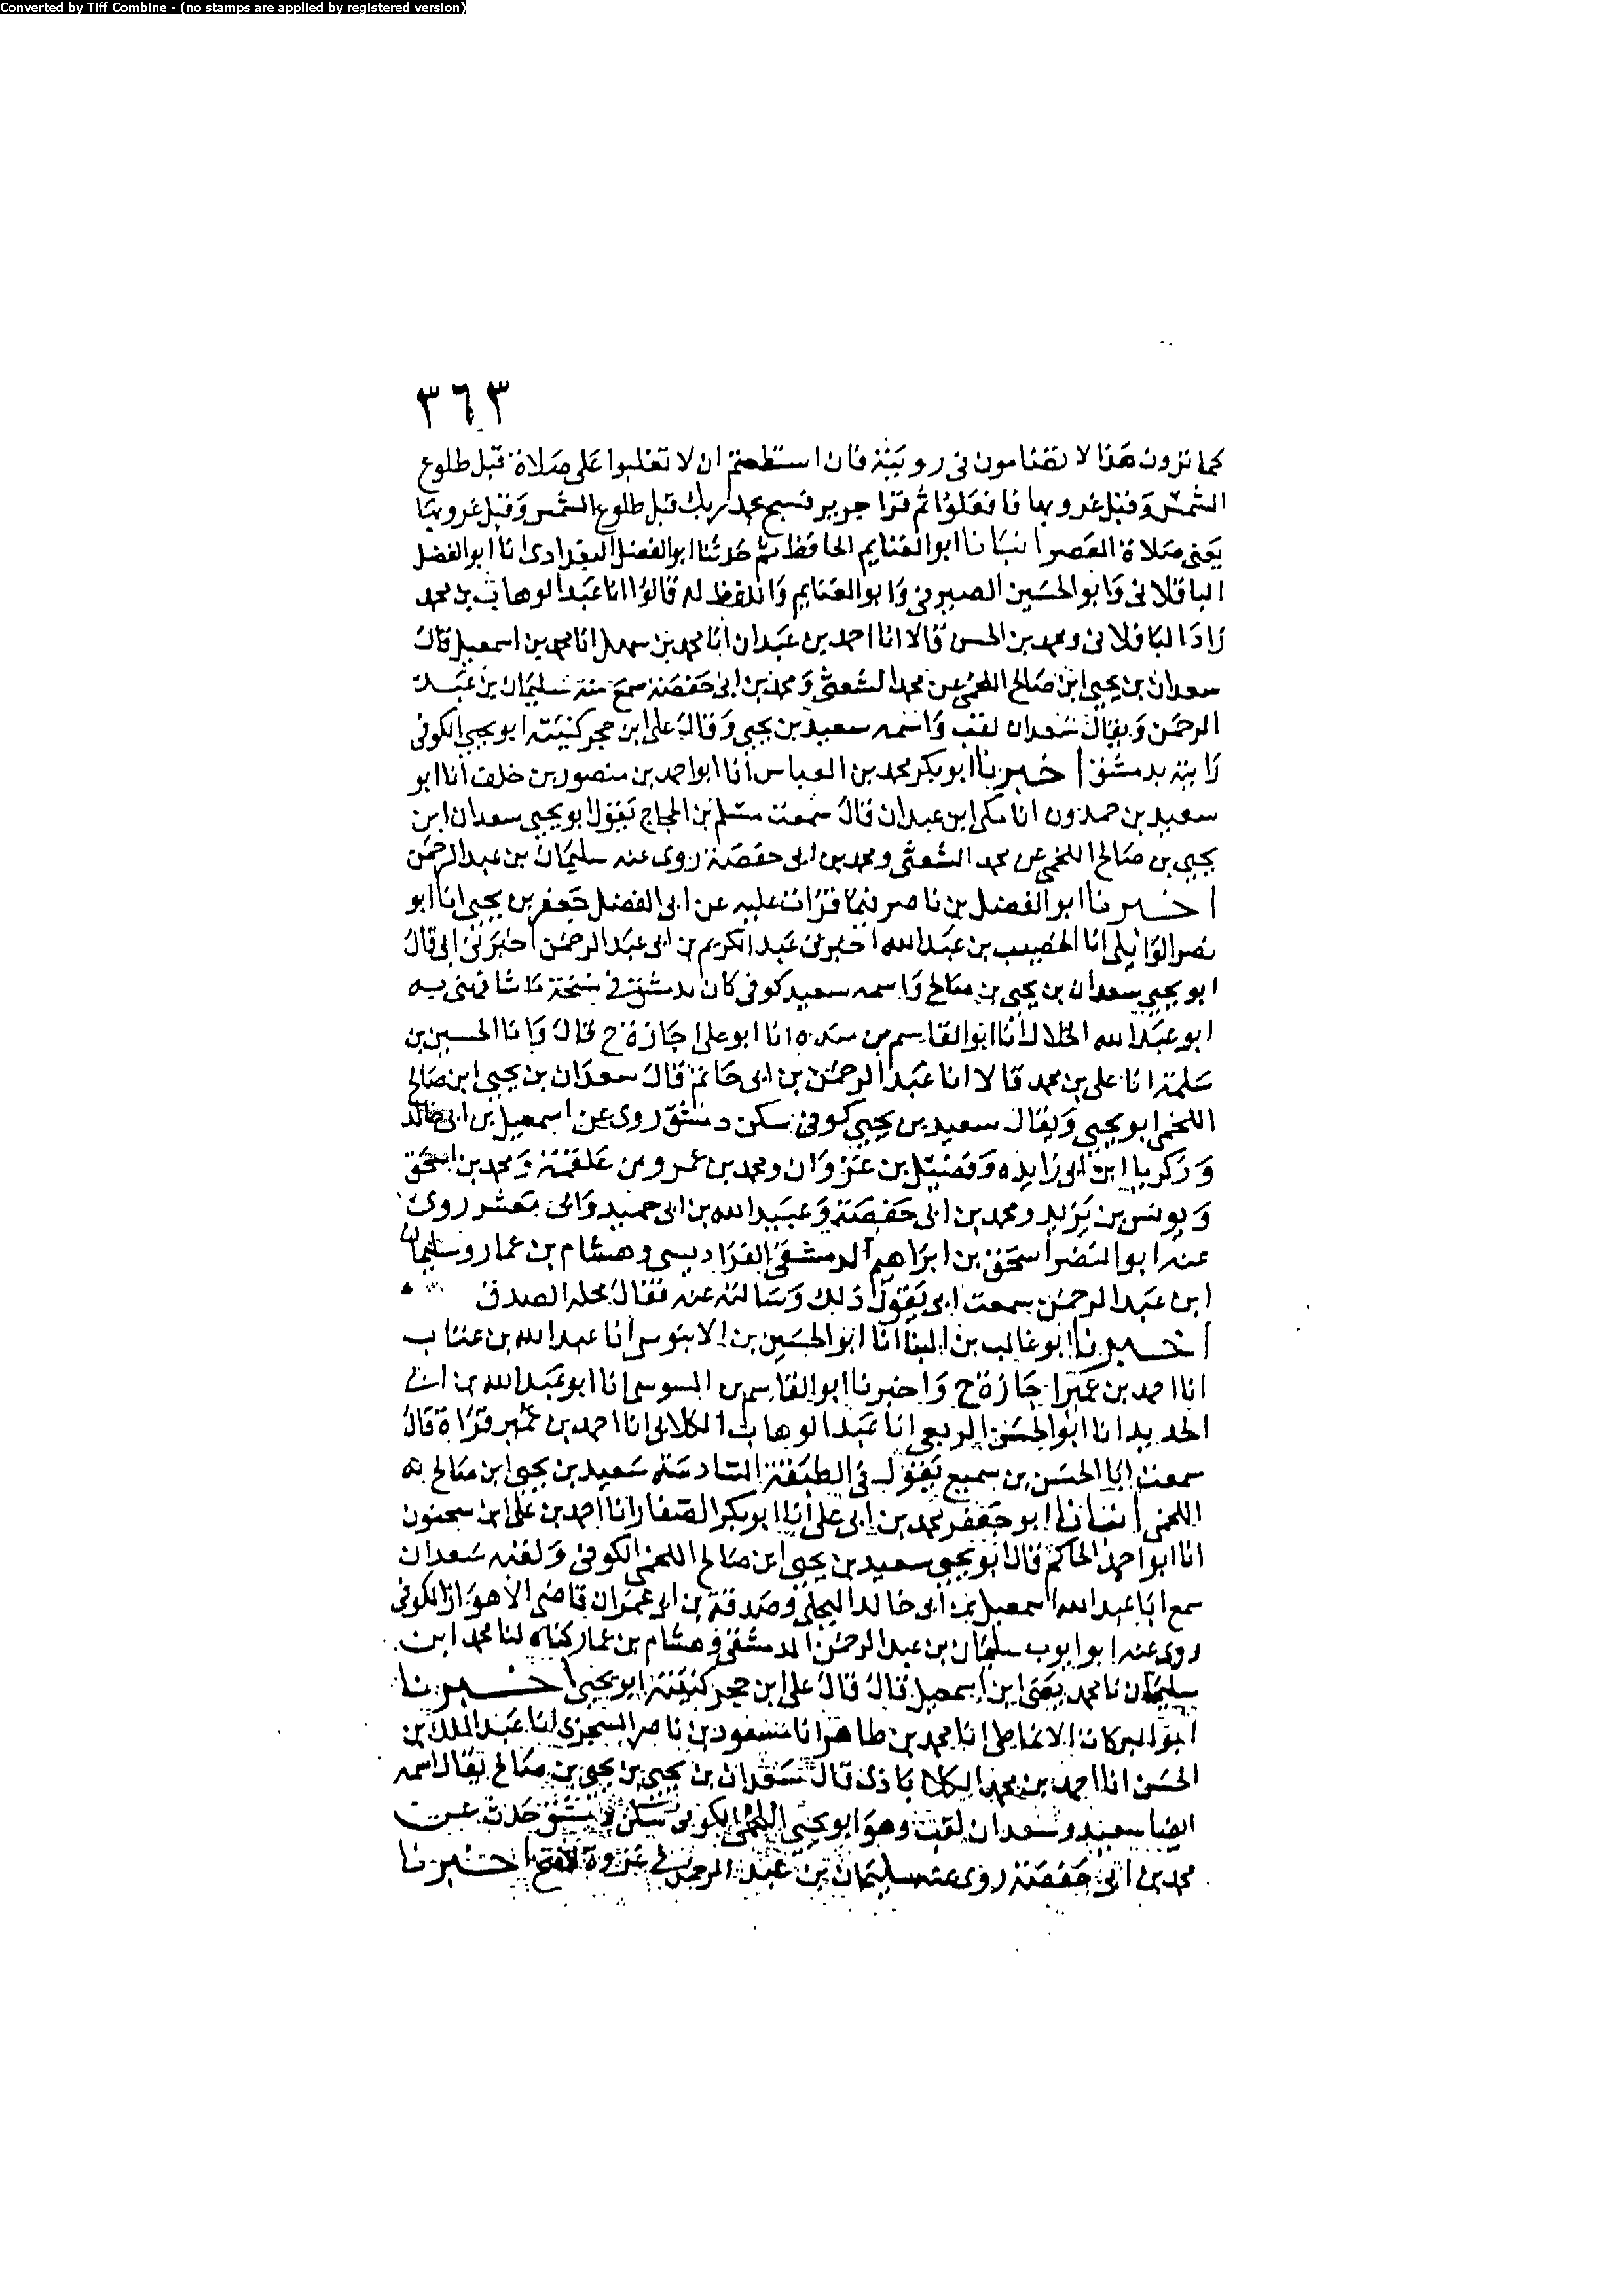 Converted by Tiff Combine - (no stamps are applied by registered version)
٣٦٣
كما ترون هذا لا تضامون فى رويته فان استطعتم ان لا تغلبوا على صلاة قبل طلوع
الشمس وقبل غروبها فافعلوا ثم قرا جرير فسبح بحمد ربك قبل طلوع الشمس وقبل غروبها
يعنى صلاة العصر انبانا ابو الغنايم الحافظ ثم حدثنا ابو الفضل البغدادى انا ابو الفضل
الباقلانى وابو الحسين الصيرفى وابو الغنايم واللفظ له قالوا انا عبد الوهاب بن محمد
زاد الباقلانى ومحمد بن الحسن قالا انا احمد بن عبدان انا محمد بن سهل انا محمد بن اسمعيل قال
سعدان بن يحيى ابن صالح اللخمى عن محمد الشعثى ومحمد بن ابى حفصة سمع منه سليمان بن عبد
الرحمن ويقال سعدان لقب واسمه سعيد بن يحيى وقال على ابن حجر كنيته ابو يحيى الكوفى
رايته بدمشق اخبرنا ابو بكر محمد بن العباس انا ابو احمد بن منصور بن خلف انا ابو
سعيد بن حمدون انا مكى ابن عبدان قال سمعت مسلم بن الحجاج يقول ابو يحيى سعدان ابن
يحيى بن صالح اللخمى عن محمد الشعثى ومحمد بن ابى حفصة روى عنه سليمان بن عبد الرحمن
اخبرنا ابو الفضل بن ناصر فيما قرات عليه عن ابى الفضل جعفر بن يحيى انا ابو
نصر الوائلى انا الخصيب بن عبد الله اخبرنى عبد الكريم بن ابى عبد الرحمن اخبرنى ابى قال
ابو يحيى سعدان بن يحيى بن صالح واسمه سعيد كوفى كان بدمشق فى نسخة ما شافهنى به
ابو عبد الله الخلال انا ابو القاسم بن منده انا ابو على اجازة ح قال وانا الحسين بن
سلمة انا على بن محمد قالا انا عبد الرحمن بن ابى حاتم قال سعدان بن يحيى ابن صالح
اللخمى ابو يحيى ويقال سعيد بن يحيى كوفى سكن دمشق روى عن اسمعيل بن ابى خالد
وزكريا ابن ابى زايده وفضيل بن غزوان ومحمد بن عمرو بن علقمة ومحمد بن اسحق
ويونس بن يزيد ومحمد بن ابى حفصة وعبيد الله بن ابى حميد وابى معشر روى
عنه ابو النضر اسحق بن ابراهيم الدمشقى الفراديسى وهشام بن عمار وسليمان
ابن عبد الرحمن سمعت ابى يقول ذلك وسالته عنه فقال محله الصدق
اخبرنا ابو غالب بن البنا انا ابو الحسين بن الابنوسى انا عبد الله بن عتاب
انا احمد بن عمير اجازة ح واخبرنا ابو القاسم بن السوسى انا ابو عبد الله بن ابى
الحديد انا ابو الحسن الربعى انا عبد الوهاب الكلابى انا احمد بن عمير قراة قال
سمعت ابا الحسن بن سميع يقول فى الطبقة السادسة سعيد بن يحيى ابن صالح
اللخمى انبانا ابو جعفر محمد بن ابى على انا ابو بكر الصفار انا احمد بن على ابن منجويه
انا ابو احمد الحاكم قال ابو يحيى سعيد بن يحيى ابن صالح اللخمى الكوفى ولقبه سعدان
سمع ابا عبد الله اسمعيل بن ابى خالد البجلى وصدقة بن ابى عمران قاضى الاهواز الكوفى
روى عنه ابو ايوب سليمان بن عبد الرحمن الدمشقى وهشام بن عمار كناه لنا محمد ابن
سليمان نا محمد يعنى ابن اسمعيل قال قال على ابن حجر كنيته ابو يحيى اخبرنا
ابو البركات الانماطى انا محمد بن طاهر انا مسعود بن ناصر السجزى انا عبد الملك بن
الحسن انا احمد بن محمد الكلاباذى قال سعدان بن يحيى بن صالح يقال اسمه
ايضا سعيد وسعدان لقب وهو ابو يحيى اللخمى الكوفى سكن دمشق حدث عن
محمد بن ابى حفصة روى عنه سليمان بن عبد الرحمن فى غزوة الفتح اخبرنا